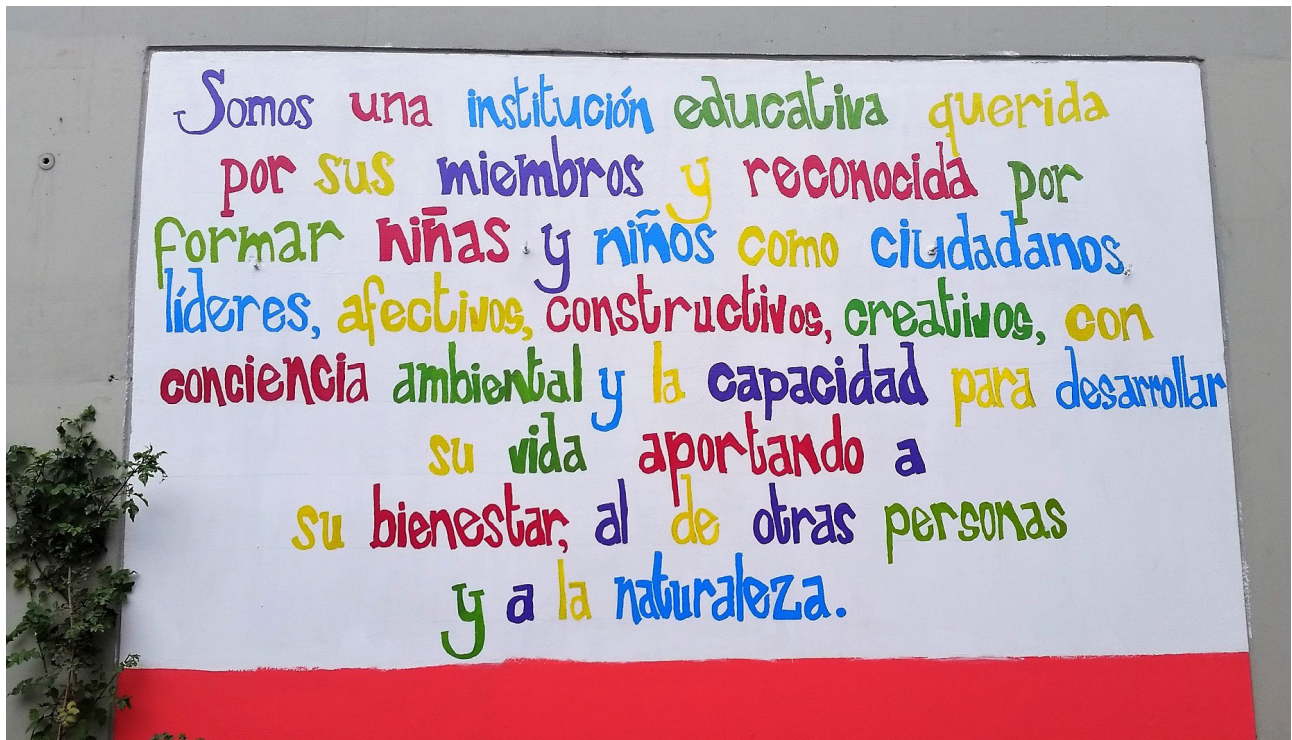 Somos una institución educativa querida
por sus miembros y reconocida por
formar niñas y niños como ciudadanos
líderes, afectivos, constructivos, creativos, con
conciencia ambiental y la capacidad para desarrollar
su vida aportando a
su bienestar, al de otras personas
y a la naturaleza.